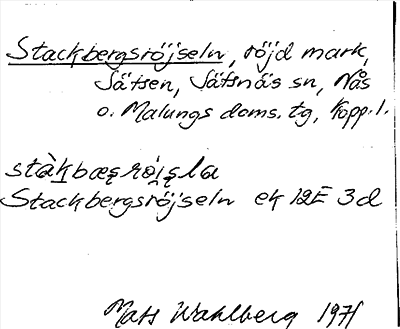 Stackbergsröjseln, röjd mark,
Sätsen, Sätsnäs sn, Nås
o. Malungs doms. tg, Kopp. l.
stàkbæʂröi̯ʂla
Stackbergsröjseln ek 12E 3d
Mats Wahlberg 1971